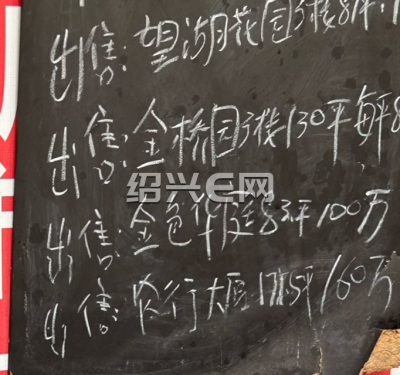 出售:望湖花园3楼81平,
出售:金桥园3楼130平每平8
绍兴E网
出售:金色华庭83平100万
出售:农行大厦1175平160万